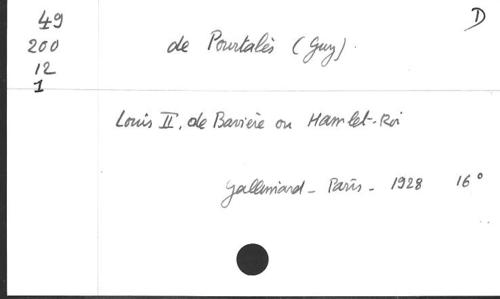 49
200
12
1
D
de Pourtalès (Guy).
Louis II, de Bavière ou Hamlet-Roi
Gallimard - Paris - 1928 16°